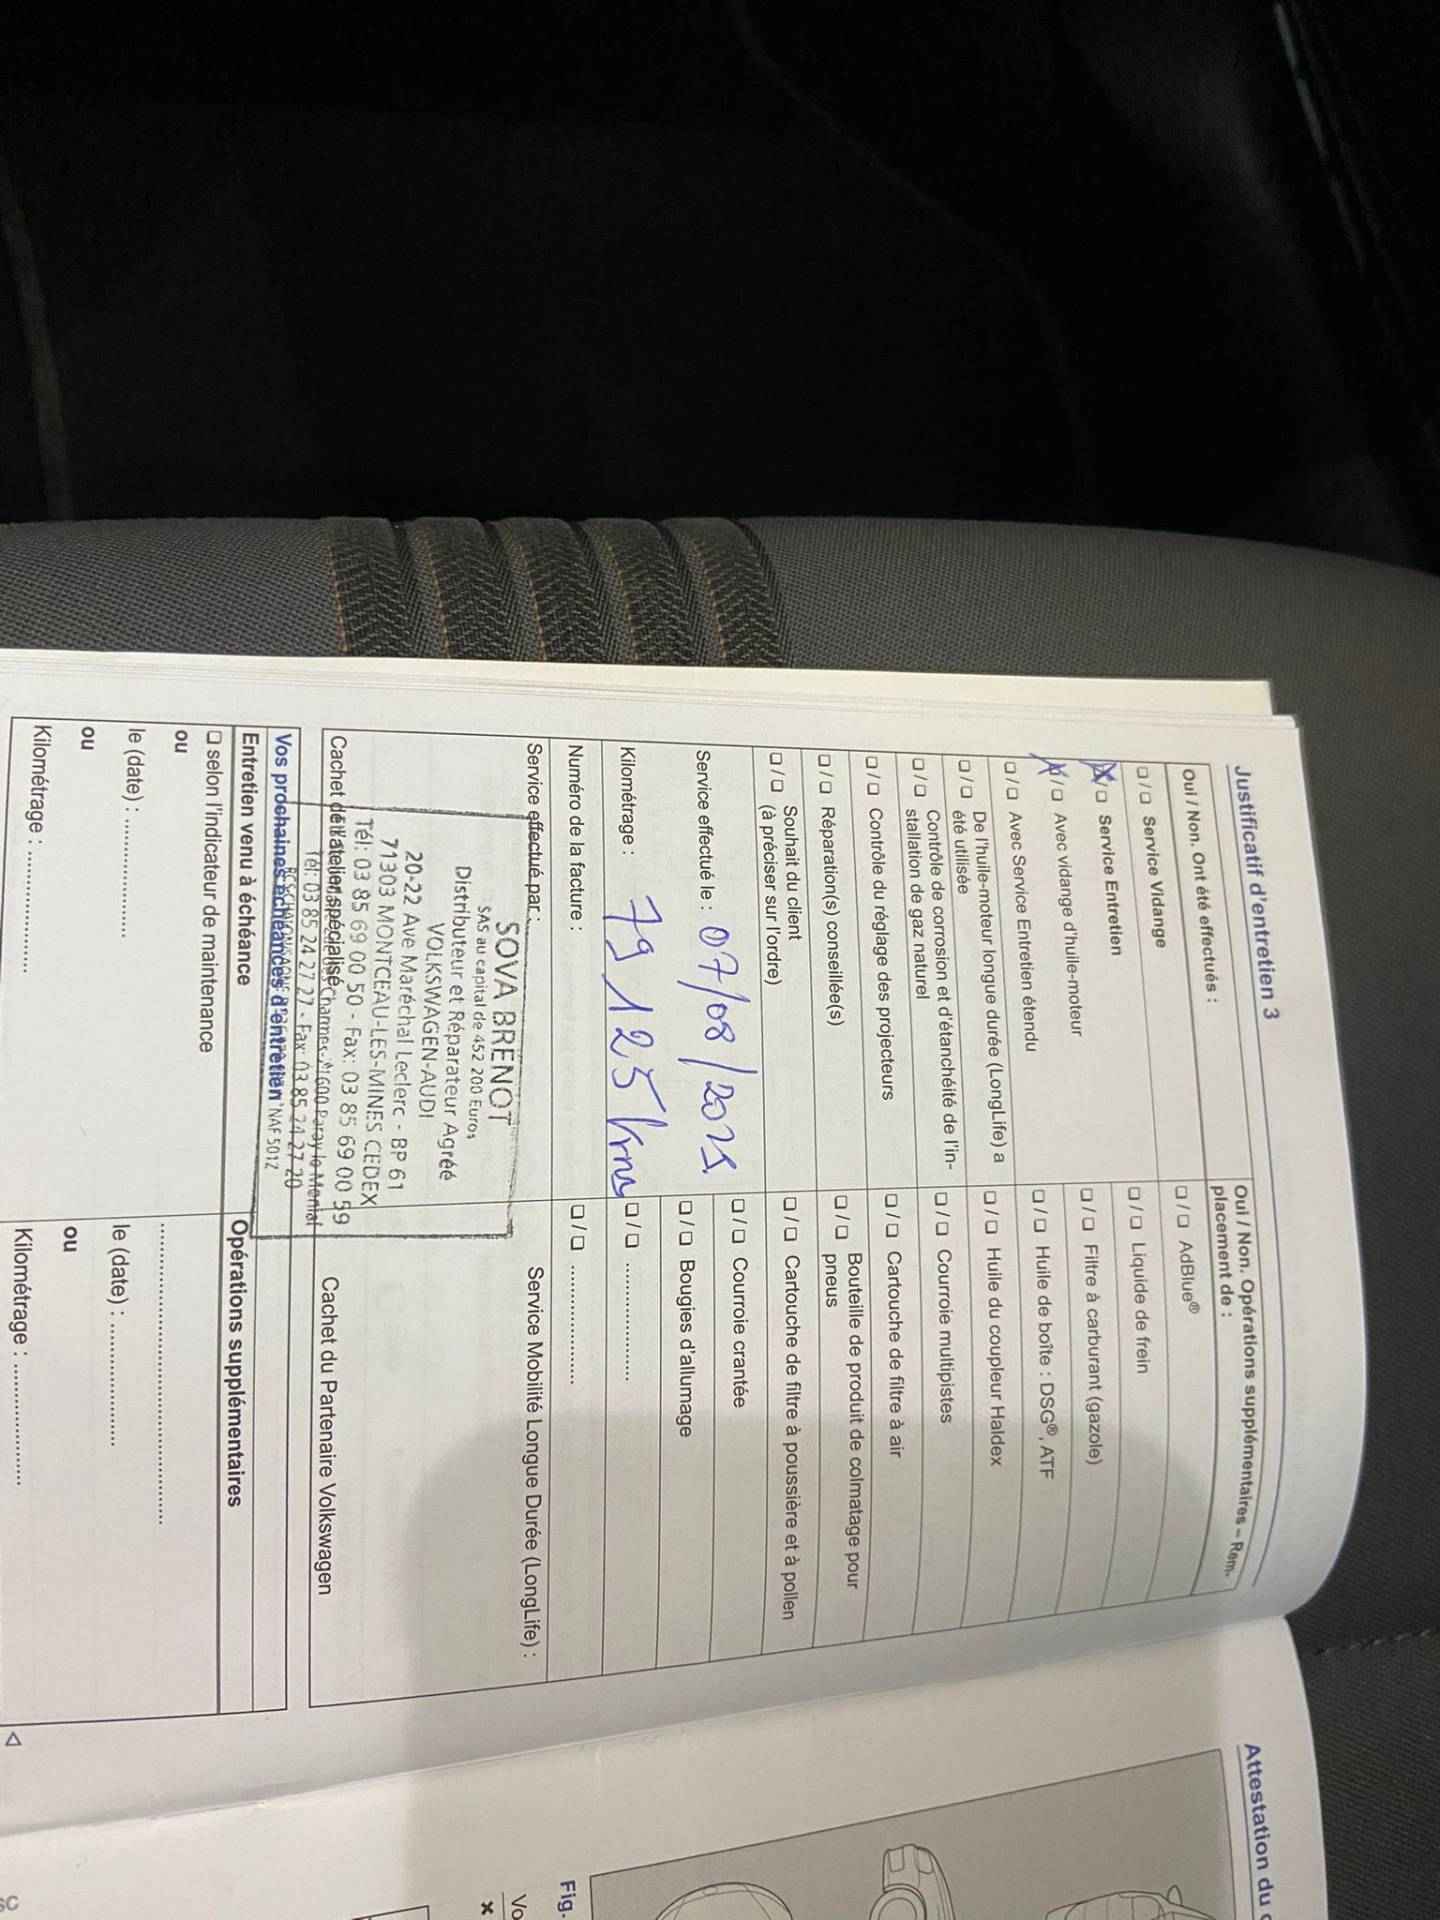 Justificatif d'entretien 3
Oui / Non. Ont été effectués :
❑ / ❑ Service Vidange
❑ Service Entretien
/ ❑ Avec vidange d'huile-moteur
❑ / ❑ Avec Service Entretien étendu
❑ / ❑ De l'huile-moteur longue durée (LongLife) a
été utilisée
❑ / ❑ Contrôle de corrosion et d'étanchéité de l'in-
stallation de gaz naturel
❑ / ❑ Contrôle du réglage des projecteurs
❑ / ❑ Réparation(s) conseillée(s)
❑ / ❑ Souhait du client
(à préciser sur l'ordre)
Service effectué le : 07/08/2021
Kilométrage : 79 125 kms
Numéro de la facture :
Service effectué par :
SOVA BRENOT
SAS au capital de 452 200 Euros
Distributeur et Réparateur Agréé
VOLKSWAGEN-AUDI
20-22 Ave Maréchal Leclerc - BP 61
71303 MONTCEAU-LES-MINES CEDEX
Tél: 03 85 69 00 50 - Fax: 03 85 69 00 59
Charmes-71600 Paray le Monial
Tél: 03 85 24 27 27 - Fax: 03 85 24 27 20
NAF 501Z
Cachet de l'atelier spécialisé
Oui / Non. Opérations supplémentaires – Rem-
placement de :
❑ / ❑ AdBlue®
❑ / ❑ Liquide de frein
❑ / ❑ Filtre à carburant (gazole)
❑ / ❑ Huile de boîte : DSG®, ATF
❑ / ❑ Huile du coupleur Haldex
❑ / ❑ Courroie multipistes
❑ / ❑ Cartouche de filtre à air
❑ / ❑ Bouteille de produit de colmatage pour
pneus
❑ / ❑ Cartouche de filtre à poussière et à pollen
❑ / ❑ Courroie crantée
❑ / ❑ Bougies d'allumage
❑ / ❑ ....................
❑ / ❑ ....................
Service Mobilité Longue Durée (LongLife) :
Cachet du Partenaire Volkswagen
Vos prochaines échéances d'entretien
Entretien venu à échéance
❑ selon l'indicateur de maintenance
ou
le (date) : ....................
ou
Kilométrage : ....................
Opérations supplémentaires
..................................................
le (date) : ....................
ou
Kilométrage : ....................
Attestation du
Fig.
Vo